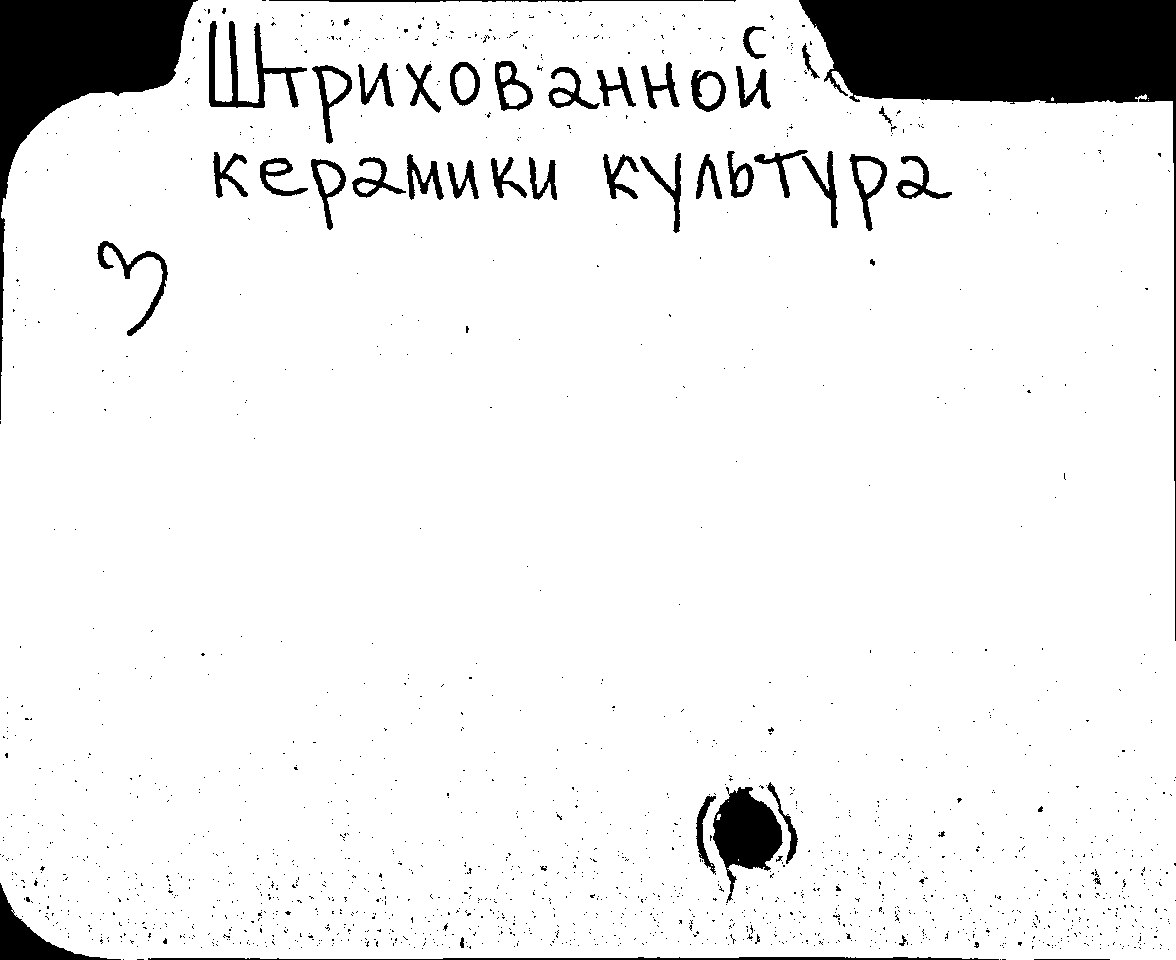 Штрихованной
керамики культура